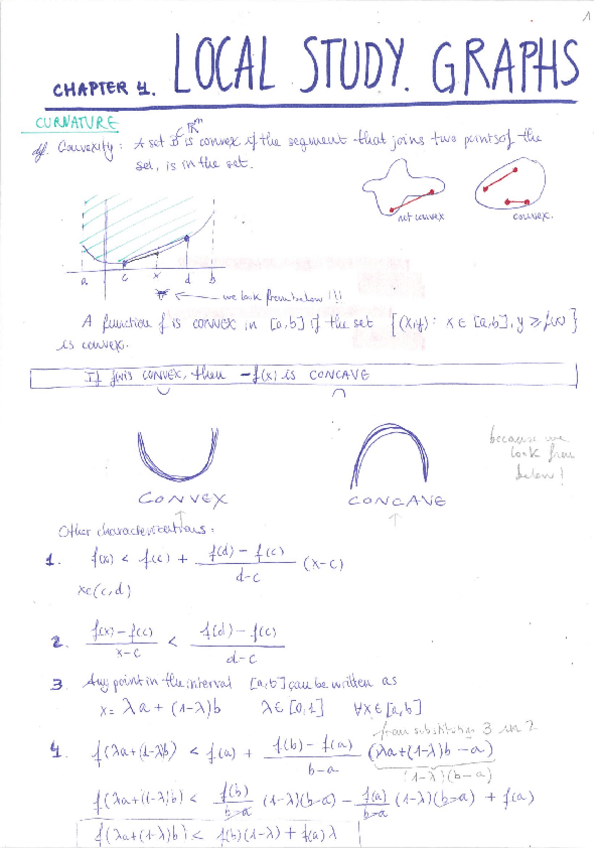 1
CHAPTER 4. LOCAL STUDY. GRAPHS
CURNATURE
df. Convexity: A set D ⊂ ℝⁿ is convex if the segment that joins two points of the
set, is in the set.
not convex
convex.
a c x d b
we look from below!!!
A function f is convex in [a,b] if the set {(x,y): x ∈ [a,b], y ≥ f(x)}
is convex.
If f(x) is CONVEX, then -f(x) is CONCAVE
because we
look from
below!
CONVEX
CONCAVE
Other characterizations:
1. f(x) < f(c) + (f(d) - f(c))/(d-c) (x-c)
x∈(c,d)
2. (f(x) - f(c))/(x-c) < (f(d) - f(c))/(d-c)
3 Any point in the interval [a,b] can be written as
x = λa + (1-λ)b λ∈[0,1] ∀x∈[a,b]
from substitution 3 in 2
4. f(λa+(1-λ)b) < f(a) + (f(b) - f(a))/(b-a) (λa+(1-λ)b-a)
(1-λ)(b-a)
f(λa+(1-λ)b) < f(b)/(b-a) (1-λ)(b-a) - f(a)/(b-a) (1-λ)(b-a) + f(a)
f(λa+(1-λ)b) < f(b)(1-λ) + f(a)λ